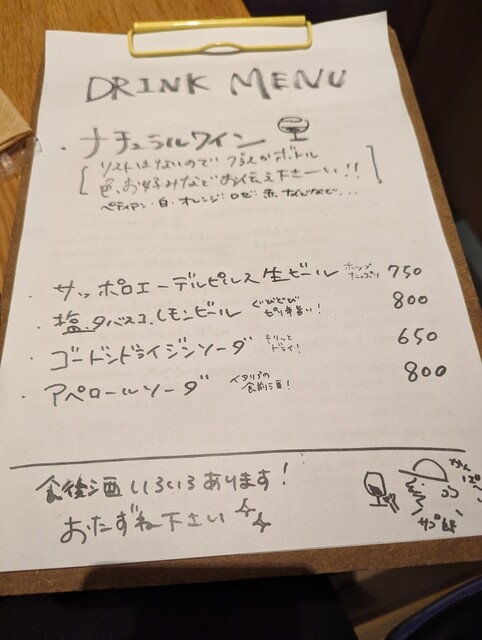 DRINK MENU
・ナチュラルワイン
リストはないので グラスかボトル
色、お好みなどお伝え下さーい!!
ペティアン・白・オレンジ・ロゼ・赤、なんなど、、、
・サッポロエーデルピルス生ビール ホップたっぷり 750
・塩、タバスコ、レモンビール ぐびぐび ピリ辛旨い! 800
・ゴードンドライジンソーダ キリッとドライ! 650
・アペロールソーダ イタリアの食前酒! 800
食後酒いろいろあります!
おたずね下さい